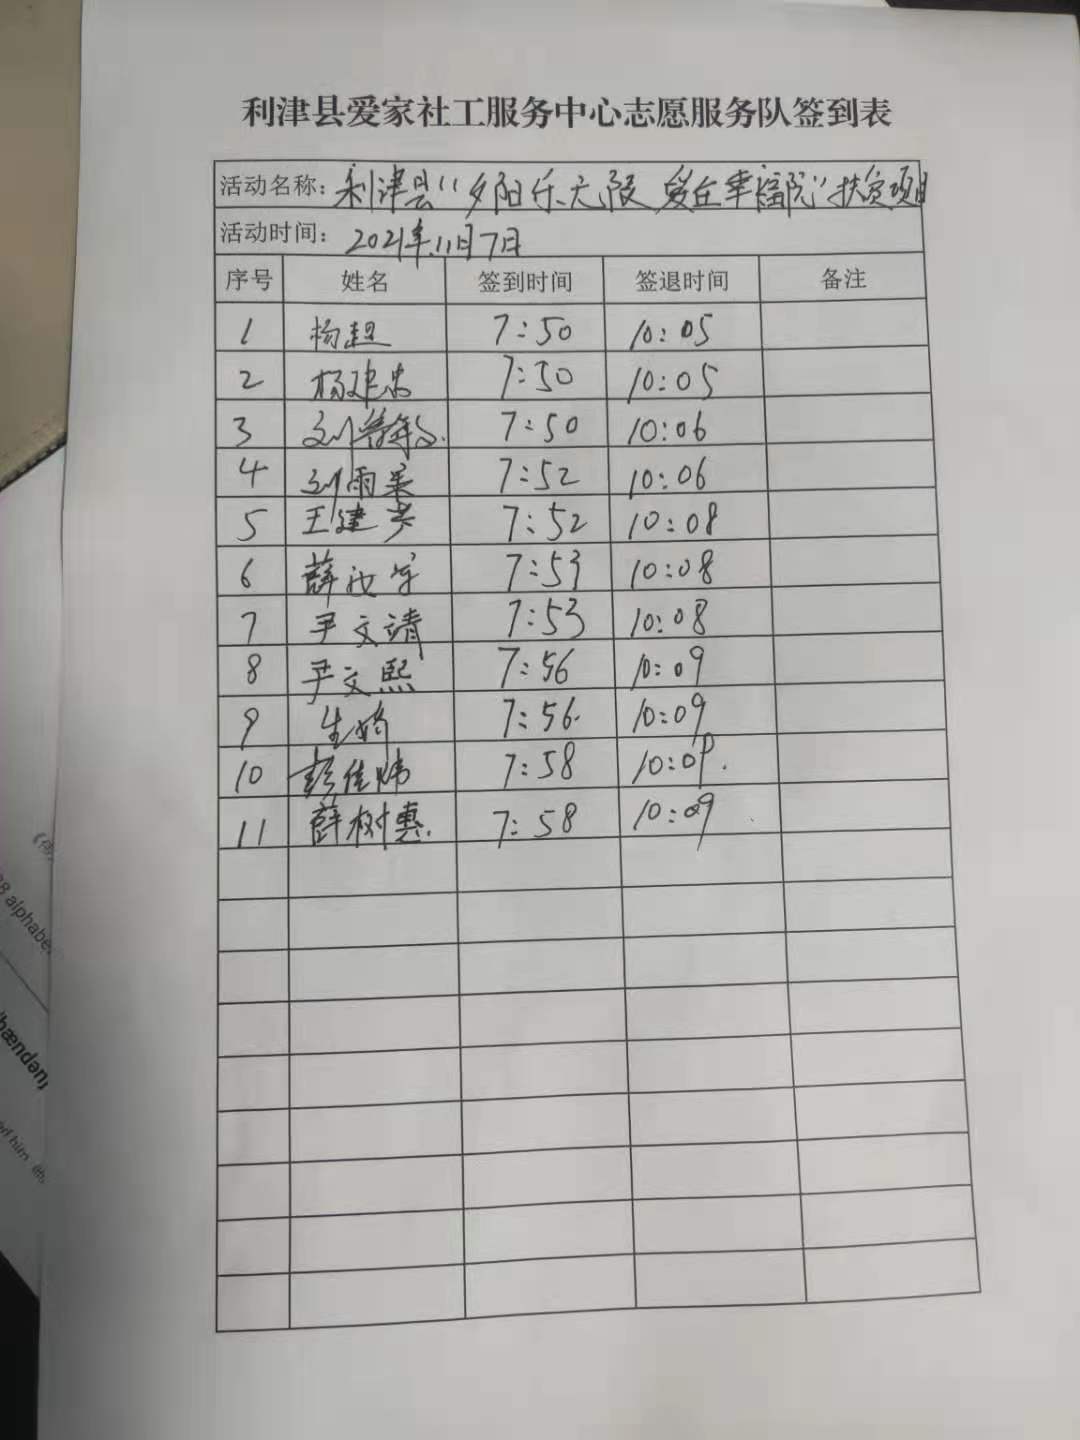 利津县爱家社工服务中心志愿服务队签到表
活动名称：利津县“夕阳乐无限 爱在幸福院”扶贫项目
活动时间：2021年11月7日
序号 姓名 签到时间 签退时间 备注
1 杨超 7:50 10:05
2 杨建忠 7:50 10:05
3 刘 7:50 10:06
4 刘雨 7:52 10:06
5 王建 7:52 10:08
6 薛 7:53 10:08
7 尹文靖 7:53 10:08
8 尹文熙 7:56 10:09
9 生 7:56 10:09
10 彭佳炜 7:58 10:09
11 薛树惠 7:58 10:09
8 alphabe
/hændən